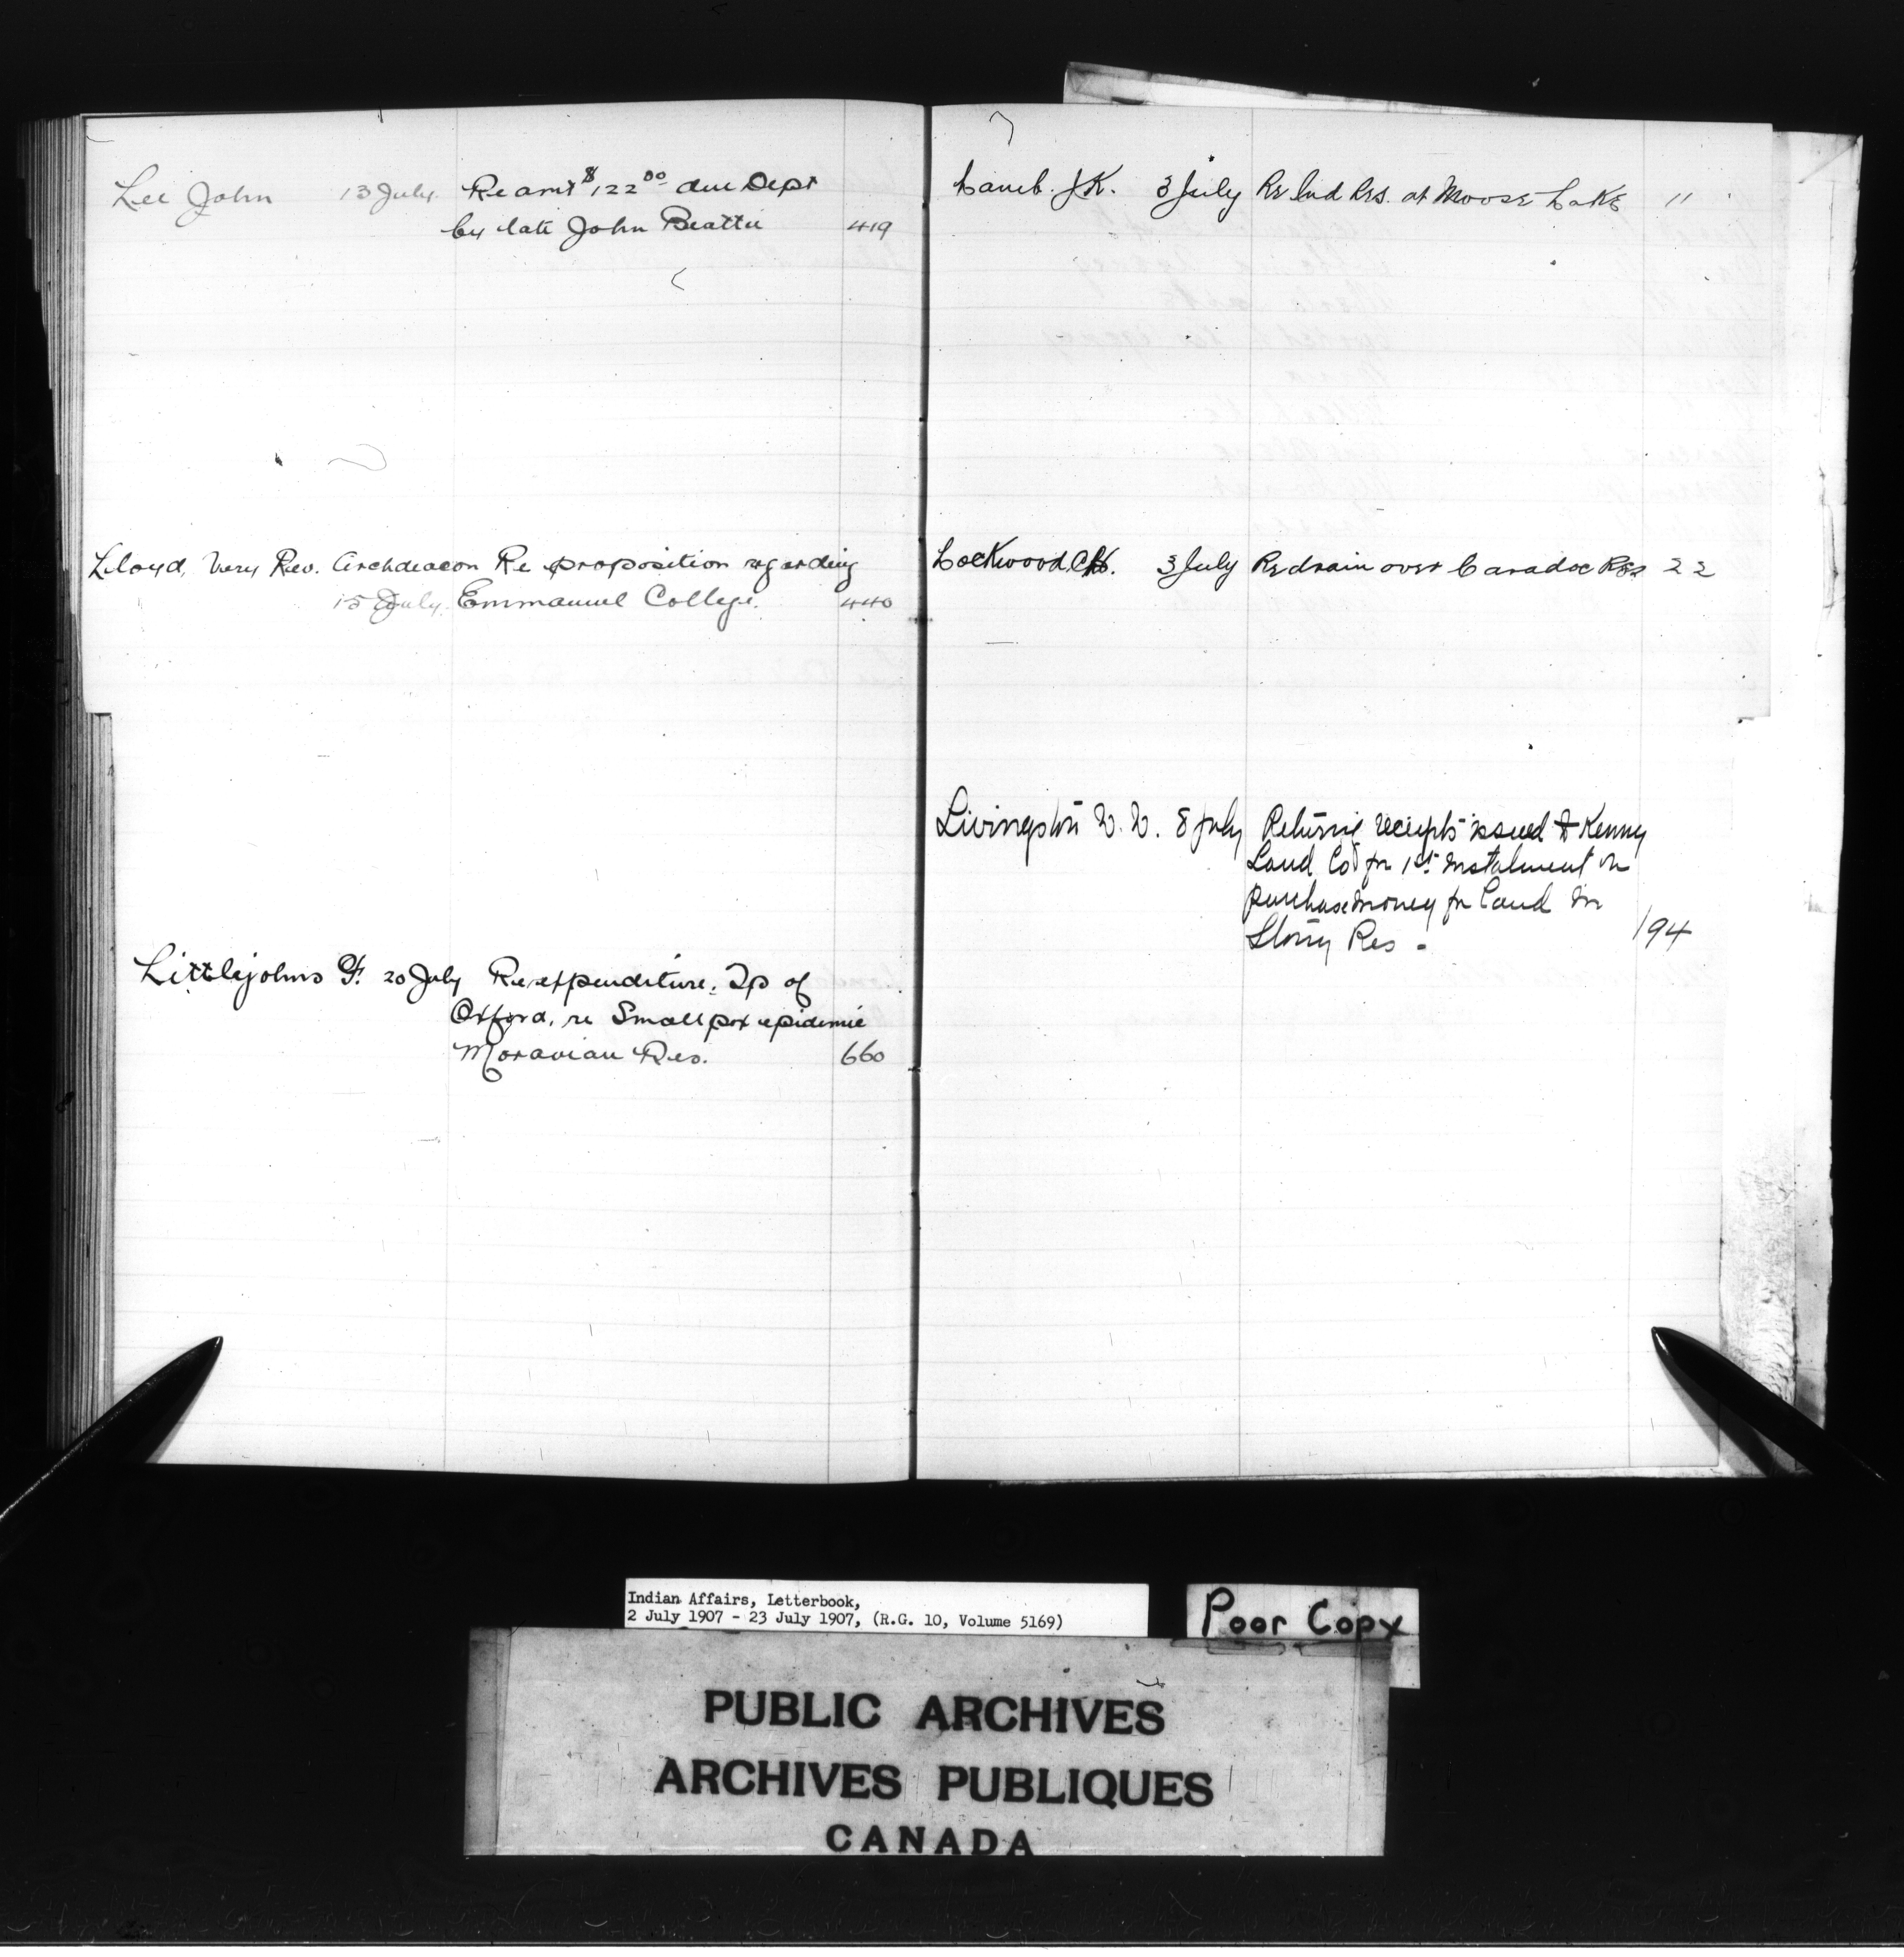 Lee John 13 July. Re amt $122.00 due Dept
by late John Beattie 419
Lloyd, Very Rev. Archdeacon Re proposition regarding
15 July. Emmanuel College. 440
Littlejohns F. 20 July Re expenditure. Tp of
Orford, re Smallpox epidemic
Moravian Res. 660
Lamb. J.K. 3 July Re Ind Res. at Moose Lake 11
Lockwood, C.H. 3 July Re drain over Caradoc Res 22
Livingston W. W. 8 July Returng receipts issued to Kenny
Land Co for 1st instalment on
purchase money for land in
Stony Res - 194
Indian Affairs, Letterbook,
2 July 1907 - 23 July 1907, (R.G. 10, Volume 5169)
Poor Copy
PUBLIC ARCHIVES
ARCHIVES PUBLIQUES
CANADA